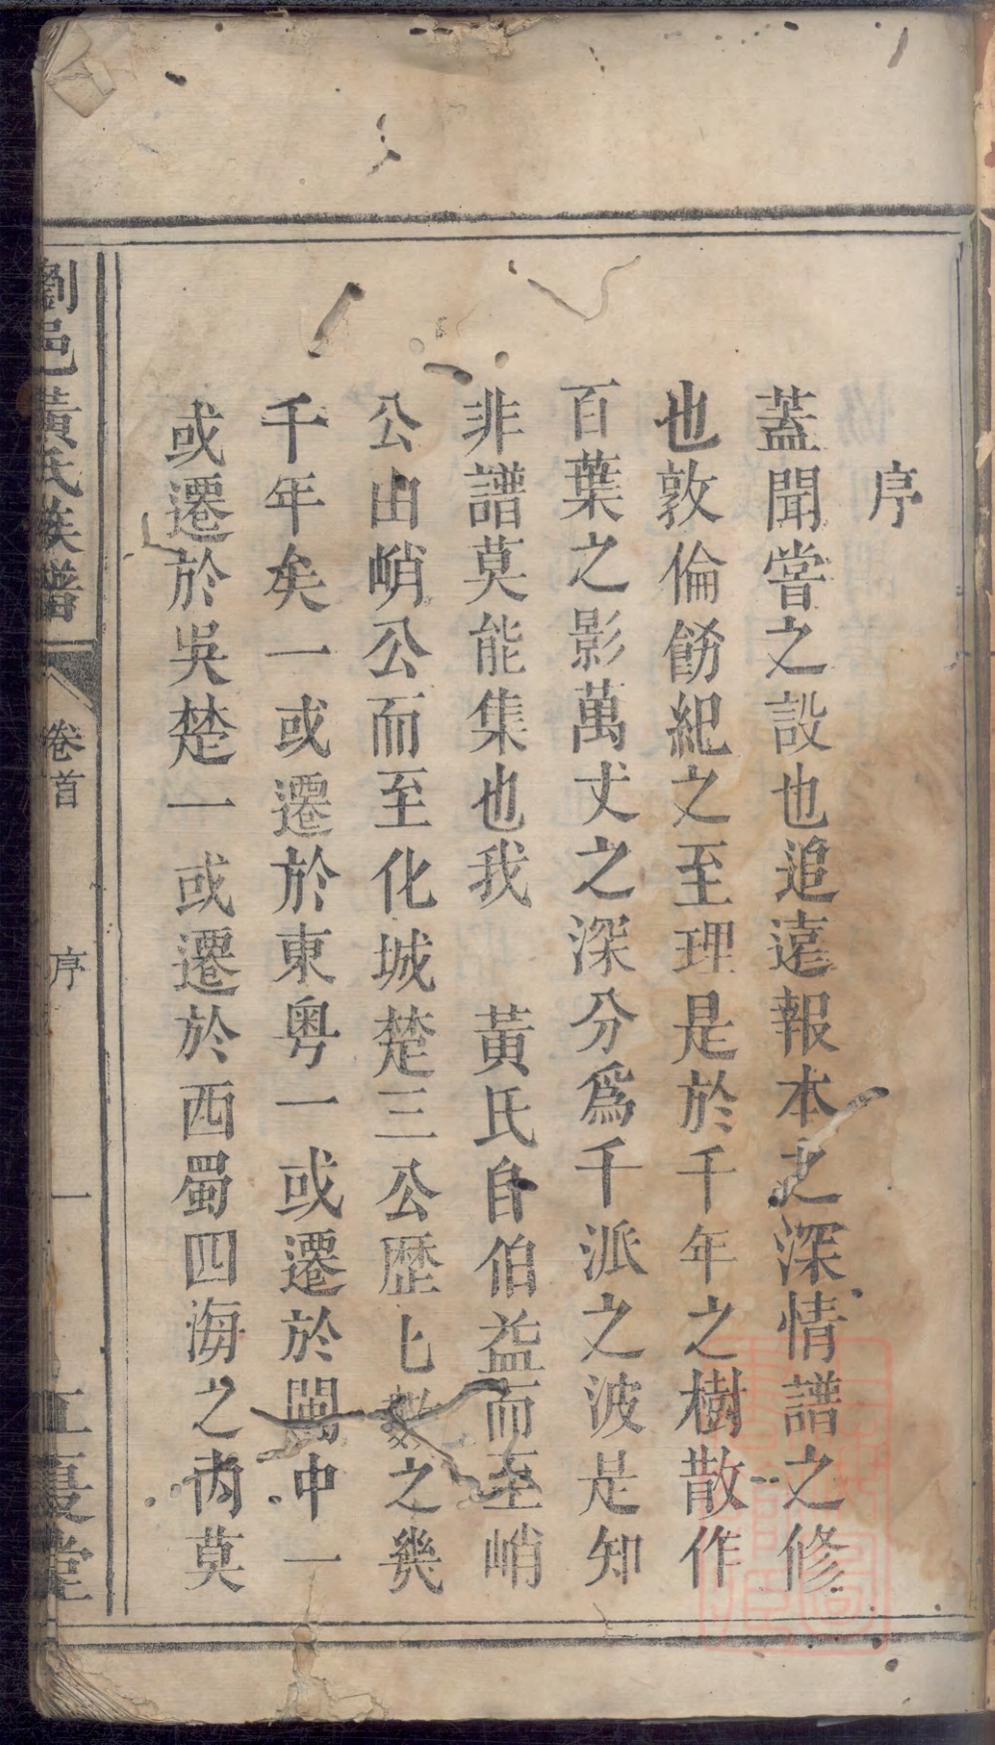 序
蓋聞嘗之設也追遠報本之深情譜之修
也敦倫飭紀之至理是於千年之樹散作
百葉之影萬丈之深分為千派之波是知
非譜莫能集也我 黃氏自伯益而至峭
公由峭公而至化城楚三公歷七數之幾
千年矣一或遷於東粵一或遷於閩中一
或遷於吳楚一或遷於西蜀四海之內莫
瀏邑黃氏族譜
卷首
序
一
江夏堂